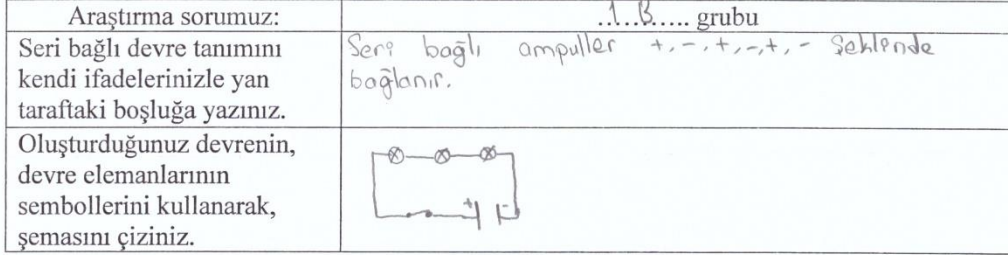 Araştırma sorumuz:
..1..B..... grubu
Seri bağlı devre tanımını
kendi ifadelerinizle yan
taraftaki boşluğa yazınız.
Seri bağlı ampuller +,-,+,-,+,- Şeklende
bağlanır.
Oluşturduğunuz devrenin,
devre elemanlarının
sembollerini kullanarak,
şemasını çiziniz.
+ -